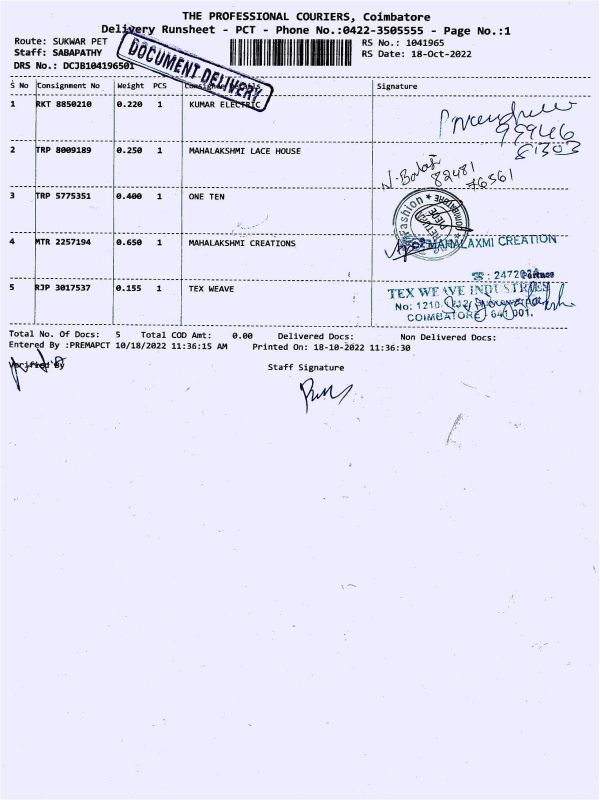 THE PROFESSIONAL COURIERS, Coimbatore
Delivery Runsheet - PCT - Phone No.:0422-3505555 - Page No.:1
Route: SUKWAR PET
RS No.: 1041965
Staff: SABAPATHY
RS Date: 18-Oct-2022
DRS No.: DCJB104196501
DOCUMENT DELIVERY
S No Consignment No Weight PCS Consignee Details Signature
1 RKT 8850210 0.220 1 KUMAR ELECTRIC
99946
81303
2 TRP 8009189 0.250 1 MAHALAKSHMI LACE HOUSE
N. Balaji
82481
46561
3 TRP 5775351 0.400 1 ONE TEN
4 MTR 2257194 0.650 1 MAHALAKSHMI CREATIONS
MAHALAXMI CREATION
Partner
5 RJP 3017537 0.155 1 TEX WEAVE
TEX WEAVE INDUSTRIES
No: 1210
COIMBATORE 641 001.
Total No. Of Docs: 5 Total COD Amt: 0.00 Delivered Docs: Non Delivered Docs:
Entered By :PREMAPCT 10/18/2022 11:36:15 AM Printed On: 18-10-2022 11:36:30
Verified By
Staff Signature